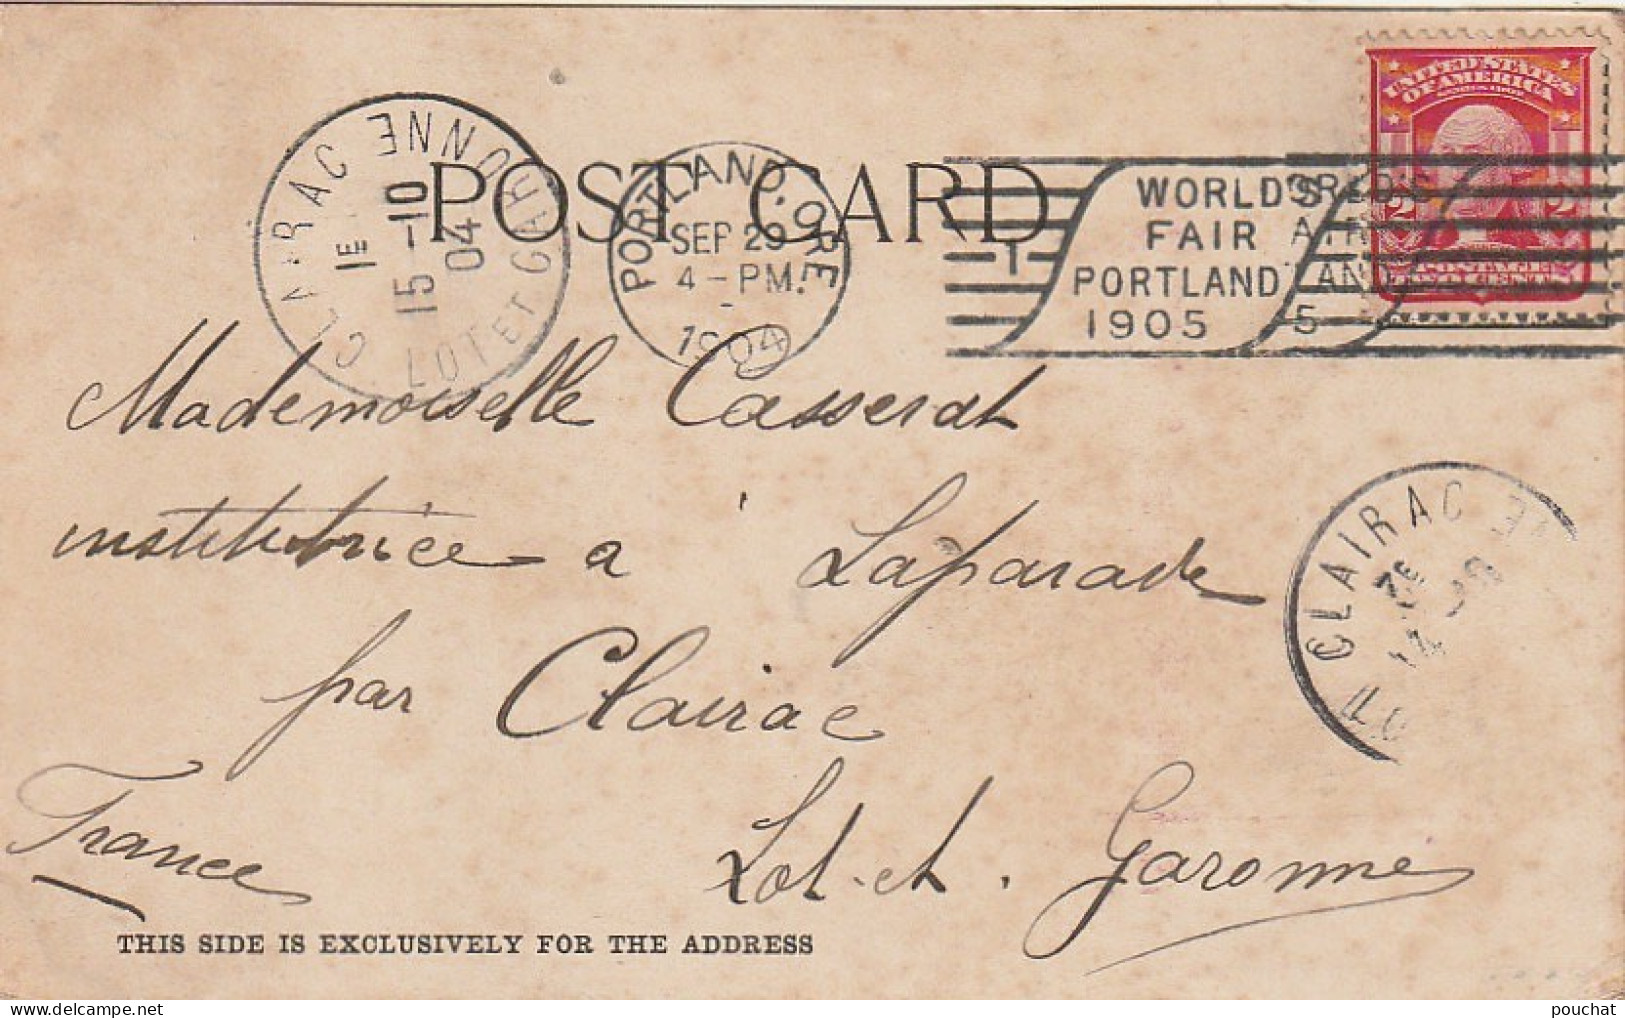 UNITED STATES
OF AMERICA
SERIES 1902
2 2
POST CARD
CLAIRAC
LOT ET GARONNE
1E
15 -10
04
PORTLAND, ORE
SEP 29
4 - PM.
1904
1
WORLD'S
FAIR
PORTLAND
1905
Mademoiselle Casserat
institutrice a Laparade
par Clairac
Lot. et. Garonne
France
CLAIRAC
THIS SIDE IS EXCLUSIVELY FOR THE ADDRESS
pouchat